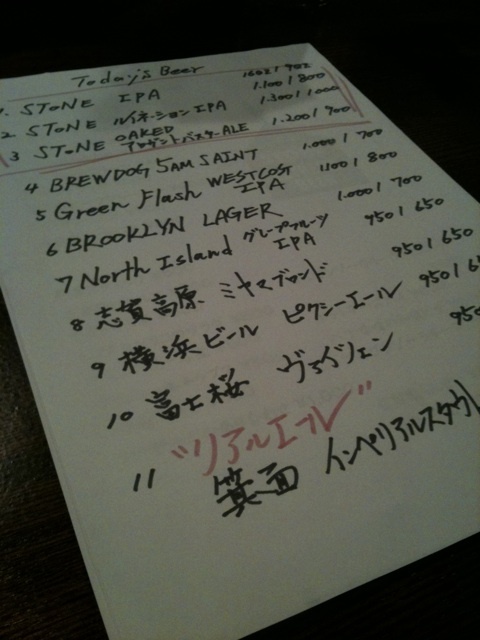 Today's Beer
16oz / 9oz
1. STONE IPA 1.100 / 800
2. STONE ルイネーションIPA 1.300 / 1.000
3 STONE OAKED アロガントバスターALE 1.200 / 900
4 BREWDOG 5AM SAINT 1.000 / 700
5 Green Flash WESTCOST IPA 1100 / 800
6 BROOKLYN LAGER 1.000 / 700
7 North Island グレープフルーツ IPA 950 / 650
8 志賀高原 ミヤマブロンド 950 / 650
9 横浜ビール ピクシーエール 950 /
10 富士桜 ヴァイツェン
"リアルエール"
11 箕面 インペリアルスタウト